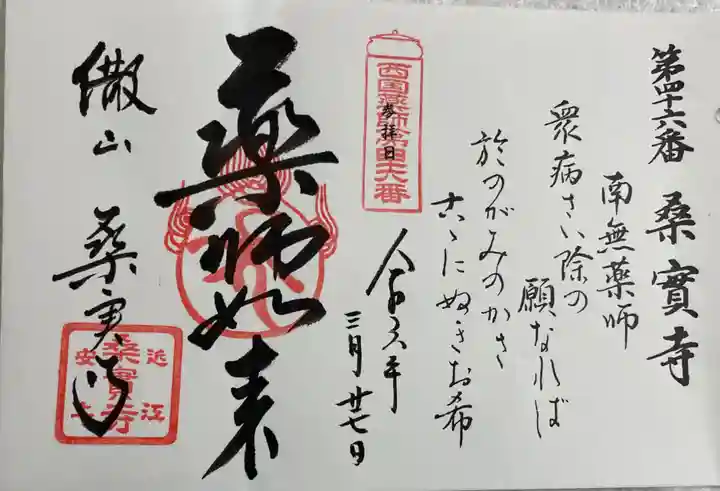 第四十六番 桑實寺
南無薬師
衆病さい除の
願なれば
於のがみのかさ
古ゝにぬきお希
西国薬師第四十六番
参拝日
三月廿七日
薬師如来
繖山 桑実寺
近江
桑實寺
安土